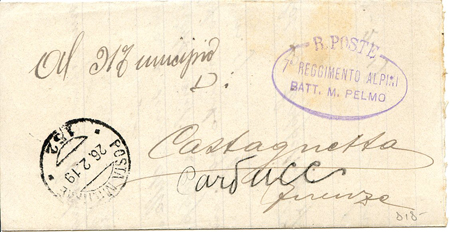 R. POSTE
7° REGGIMENTO ALPINI
BATT. M. PELMO
Al Municipio
Di
Castagnetta
Carducci
Firenze
POSTA MILITARE
26.2.19
152